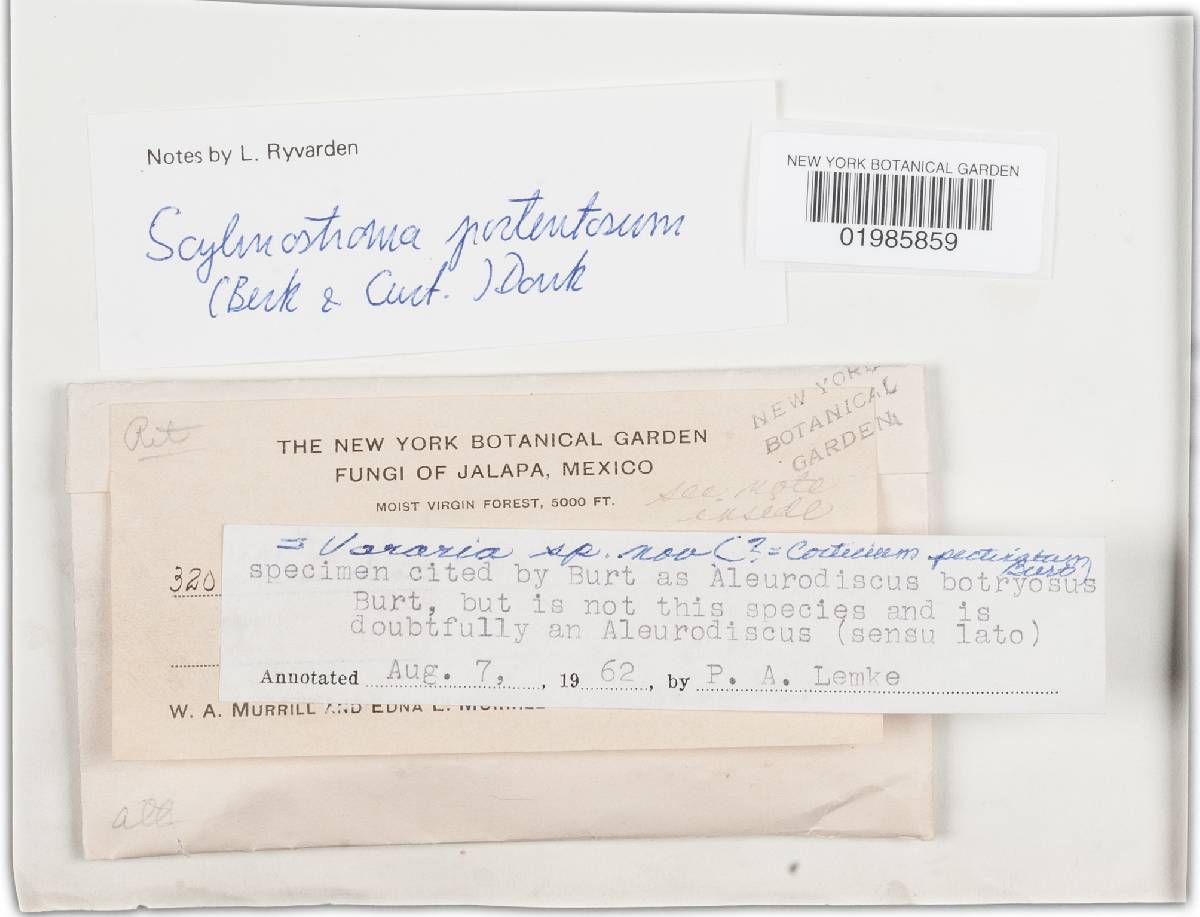 Notes by L. Ryvarden
Scylmostroma portentosum
(Berk & Curt.) Donk
NEW YORK BOTANICAL GARDEN
01985859
NEW YORK
BOTANICAL
GARDEN
THE NEW YORK BOTANICAL GARDEN
FUNGI OF JALAPA, MEXICO
MOIST VIRGIN FOREST, 5000 FT.
see note
inside
320
= Vararia sp. nov (? = Corticium pectinatum
Burt)
specimen cited by Burt as Aleurodiscus botryosus
Burt, but is not this species and is
doubtfully an Aleurodiscus (sensu lato)
Annotated Aug. 7, , 19 62 , by P. A. Lemke
W. A. MURRILL AND EDNA L. MURRILL
all